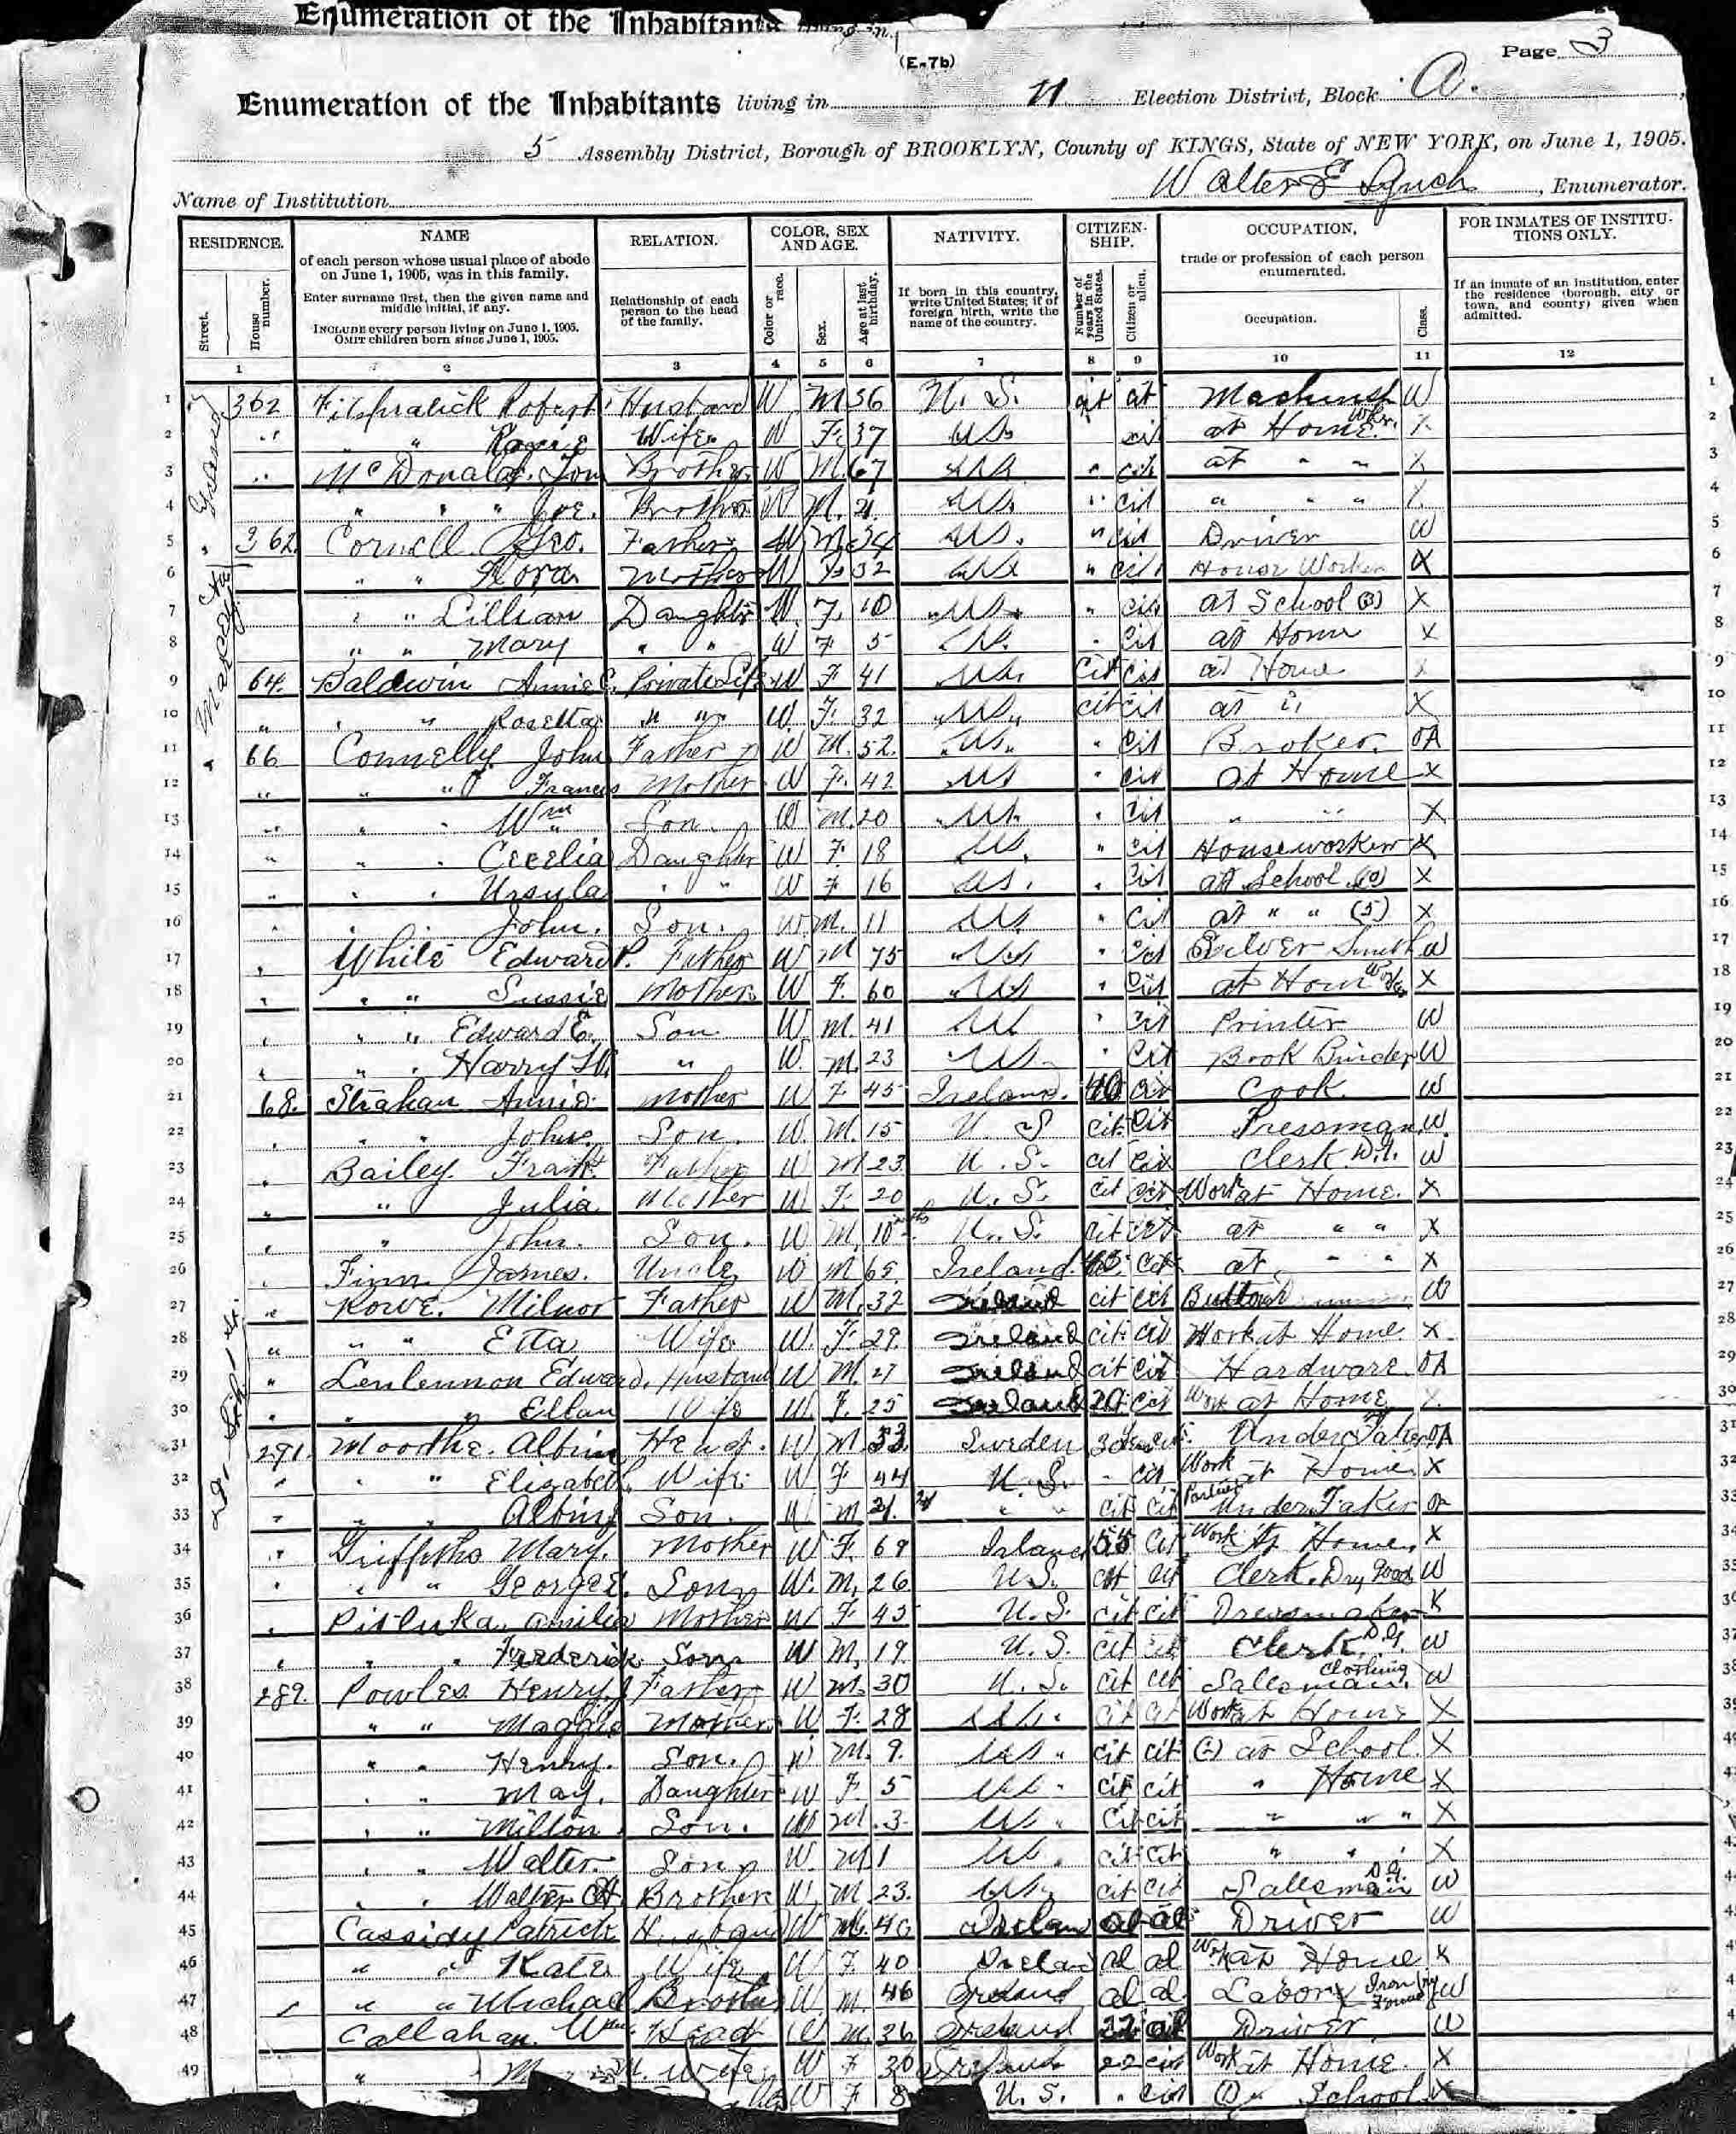 Enumeration of the Inhabitants living in
Page 3
(E-7b)
Enumeration of the Inhabitants living in 11 Election District, Block A.
5 Assembly District, Borough of BROOKLYN, County of KINGS, State of NEW YORK, on June 1, 1905.
Name of Institution Walter E Lynch, Enumerator.
RESIDENCE. NAME RELATION. COLOR, SEX AND AGE. NATIVITY. CITIZENSHIP. OCCUPATION, FOR INMATES OF INSTITUTIONS ONLY.
Street. House number. of each person whose usual place of abode on June 1, 1905, was in this family. Enter surname first, then the given name and middle initial, if any. INCLUDE every person living on June 1, 1905. OMIT children born since June 1, 1905. Relationship of each person to the head of the family. Color or race. Sex. Age at last birthday. If born in this country, write United States; if of foreign birth, write the name of the country. Number of years in the United States. Citizen or alien. trade or profession of each person enumerated. Occupation. Class. If an inmate of an institution, enter the residence (borough, city or town, and county) given when admitted.
1 2 3 4 5 6 7 8 9 10 11 12
1 362 Husband W M 36 U. S. cit Machinist W 1
2 " " Wife W F 37 US cit at Home X 2
3 " McDonald Tom Brother W M 67 US " cit at " " X 3
4 " " " Joe. Brother W M. 21 US. " cit " " " X 4
5 " 362 Cornell Geo. Father W M 34 US. " cit Driver W 5
6 " " Flora Mother W F 32 US " cit House Worker X 6
7 " " Lillian Daughter W F. 10 US. " cit at School (3) X 7
8 " " Mary " " W F 5 US. " cit at Home X 8
9 64. Baldwin Annie C. Private W F 41 US. cit cit at Home X 9
10 " " Rosetta " " W. F. 32 US. cit cit at " X 10
11 " 66 Connelly John Father W M. 52. US. " cit Broker. OA 11
12 " " " Frances Mother W F. 42 US " cit at Home X 12
13 " " " Wm Son. W M. 20 US. " cit " " X 13
14 " " " Cecelia Daughter W F. 18 US. " cit Houseworker X 14
15 " " " Ursula " " W F 16 US. " cit at School X 15
16 " " " John. Son. W. M. 11 US. " cit at " " (5) X 16
17 " White Edward P. Father W M 75 US " cit Silver Smith W 17
18 " " " Sussie Mother W F. 60 US " cit at Home Work X 18
19 " " " Edward E. Son W M. 41 US " cit Printer W 19
20 " " " Harry W. " W. M. 23 US. " cit Book Binder W 20
21 68. Strahan Annie Mother W F 45 Ireland. 40 cit Cook. W 21
22 " " " John Son. W. M. 15 U. S cit cit Pressman W. 22
23 " Bailey. Frank Father W M 23 U. S. cit cit Clerk W 23
24 " " Julia Mother W F. 20 U. S. cit cit Work at Home. X 24
25 " " John. Son. W M. 10 U. S. cit cit at " " X 25
26 " Finn James. Uncle W M 65 Ireland. cit at " " X 26
27 " Rowe. Milnor Father W M. 32 cit cit W 27
28 " " " Etta Wife W. F. 29. Ireland cit cit Work at Home X 28
29 " Edward, Husband W M. Ireland cit cit Hardware OA 29
30 " " " Ellan Wife W. F. 25 Ireland 20 cit Work at Home X 30
31 291. Albin Head. W M 53. Sweden cit. UnderTaker OA 31
32 " " " Elizabeth. Wife W F 44 U. S. " cit Work at Home X 32
33 " " " Albin Son. W M 21. " " cit cit Partner UnderTaker OA 33
34 " Griffiths Mary. Mother W F. 68 Ireland 55 Cit Work At Home. X 34
35 " " " George E. Son W. M. 26 U.S. cit cit Clerk. Dry Good W 35
36 " Amilia Mother W F 45 U. S. cit cit Dressmaker 36
37 " " " Frederick Son W M. 19. U. S. cit cit Clerk. D.G. W 37
38 289. Powles Henry J Father W M. 30 U. S. cit cit Salesman. Clothing W 38
39 " " Maggie Mother W F. 28 US. cit cit Work at Home X 39
40 " " Henry. Son. W M. 9. US. " cit cit (2) at School. X
41 " " May. Daughter W F. 5 US. cit cit " Home X
42 " " Milton Son. W M. 3. US. " cit cit " " " X
43 " " Walter Son W. M 1 US. cit cit " " " X
44 " " Walter Brother W. M 23. US. cit cit Salesman D.G. W
45 Cassidy Patrick Husband W M. 40 Ireland al al Driver W
46 " " Kate Wife W F. 40 Ireland al al Work at Home X
47 " " Michael Brother W. M. 46 Ireland al al Labor Iron W
48 Callahan. Wm Head W M. 36 Ireland 22 cit Driver W
49 " M. Wife W F 30 Ireland 22 cit Work at Home. X
W F 8 U. S. " cit School X